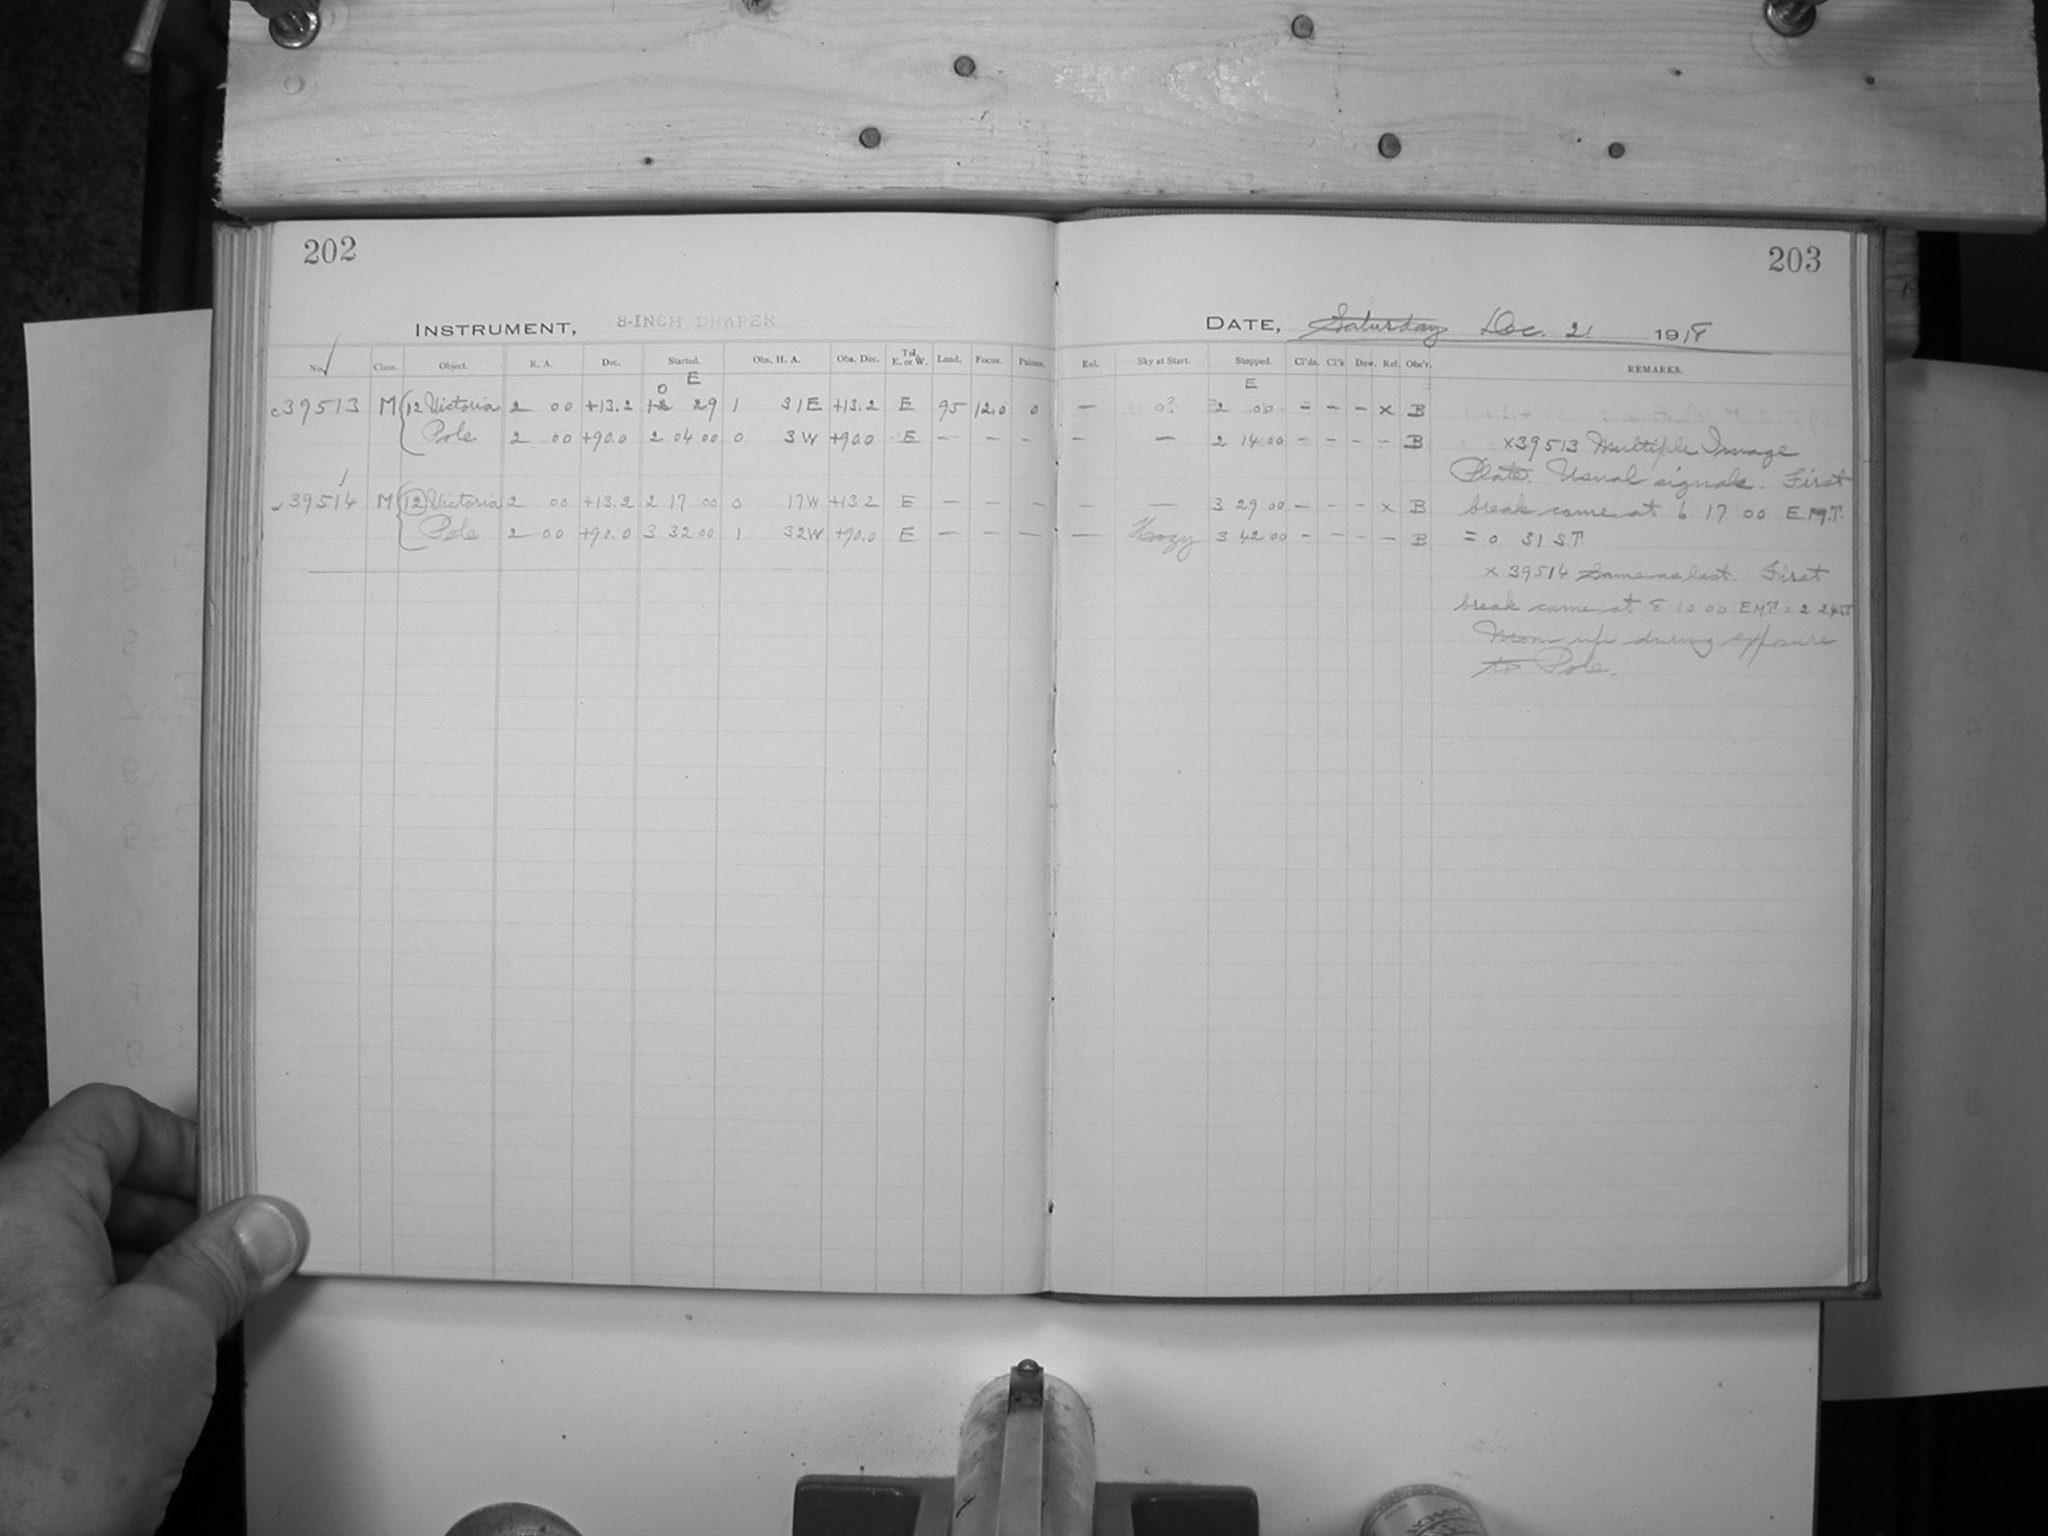 202
INSTRUMENT, 8-INCH DRAPER
No. Class. Object. R. A. Dec. Started. Obs. H. A. Obs. Dec. Tel. E. or W. Load. Focus. Prisms.
0 E
c39513 M 12 Victoria 2 00 +13.2 29 1 31E +13.2 E 95 12.0 0
Pole 2 00 +90.0 2 04 00 0 3W +90.0 E — — —
c39514 M 12 Victoria 2 00 +13.2 2 17 00 0 17W +13.2 E — — —
Pole 2 00 +90.0 3 32 00 1 32W +90.0 E — — —
203
DATE, Saturday Dec. 21 1918
Exl. Sky at Start. Stopped. Cl'ds. Cl'k Dew. Rel. Obs'r. REMARKS.
E
— 0? 2 00 – – – x B
— — 2 14 00 – – – – B x39513 Multiple Image
Plate. Usual signals. First
— — 3 29 00 – – – x B break came at 6 17 00 E.M.T.
— Hazy 3 42 00 – – – – B = 0 31 ST
x 39514 Same as last. First
break came at 8 10 00 EMT = 2
Moon up during exposure
to Pole.